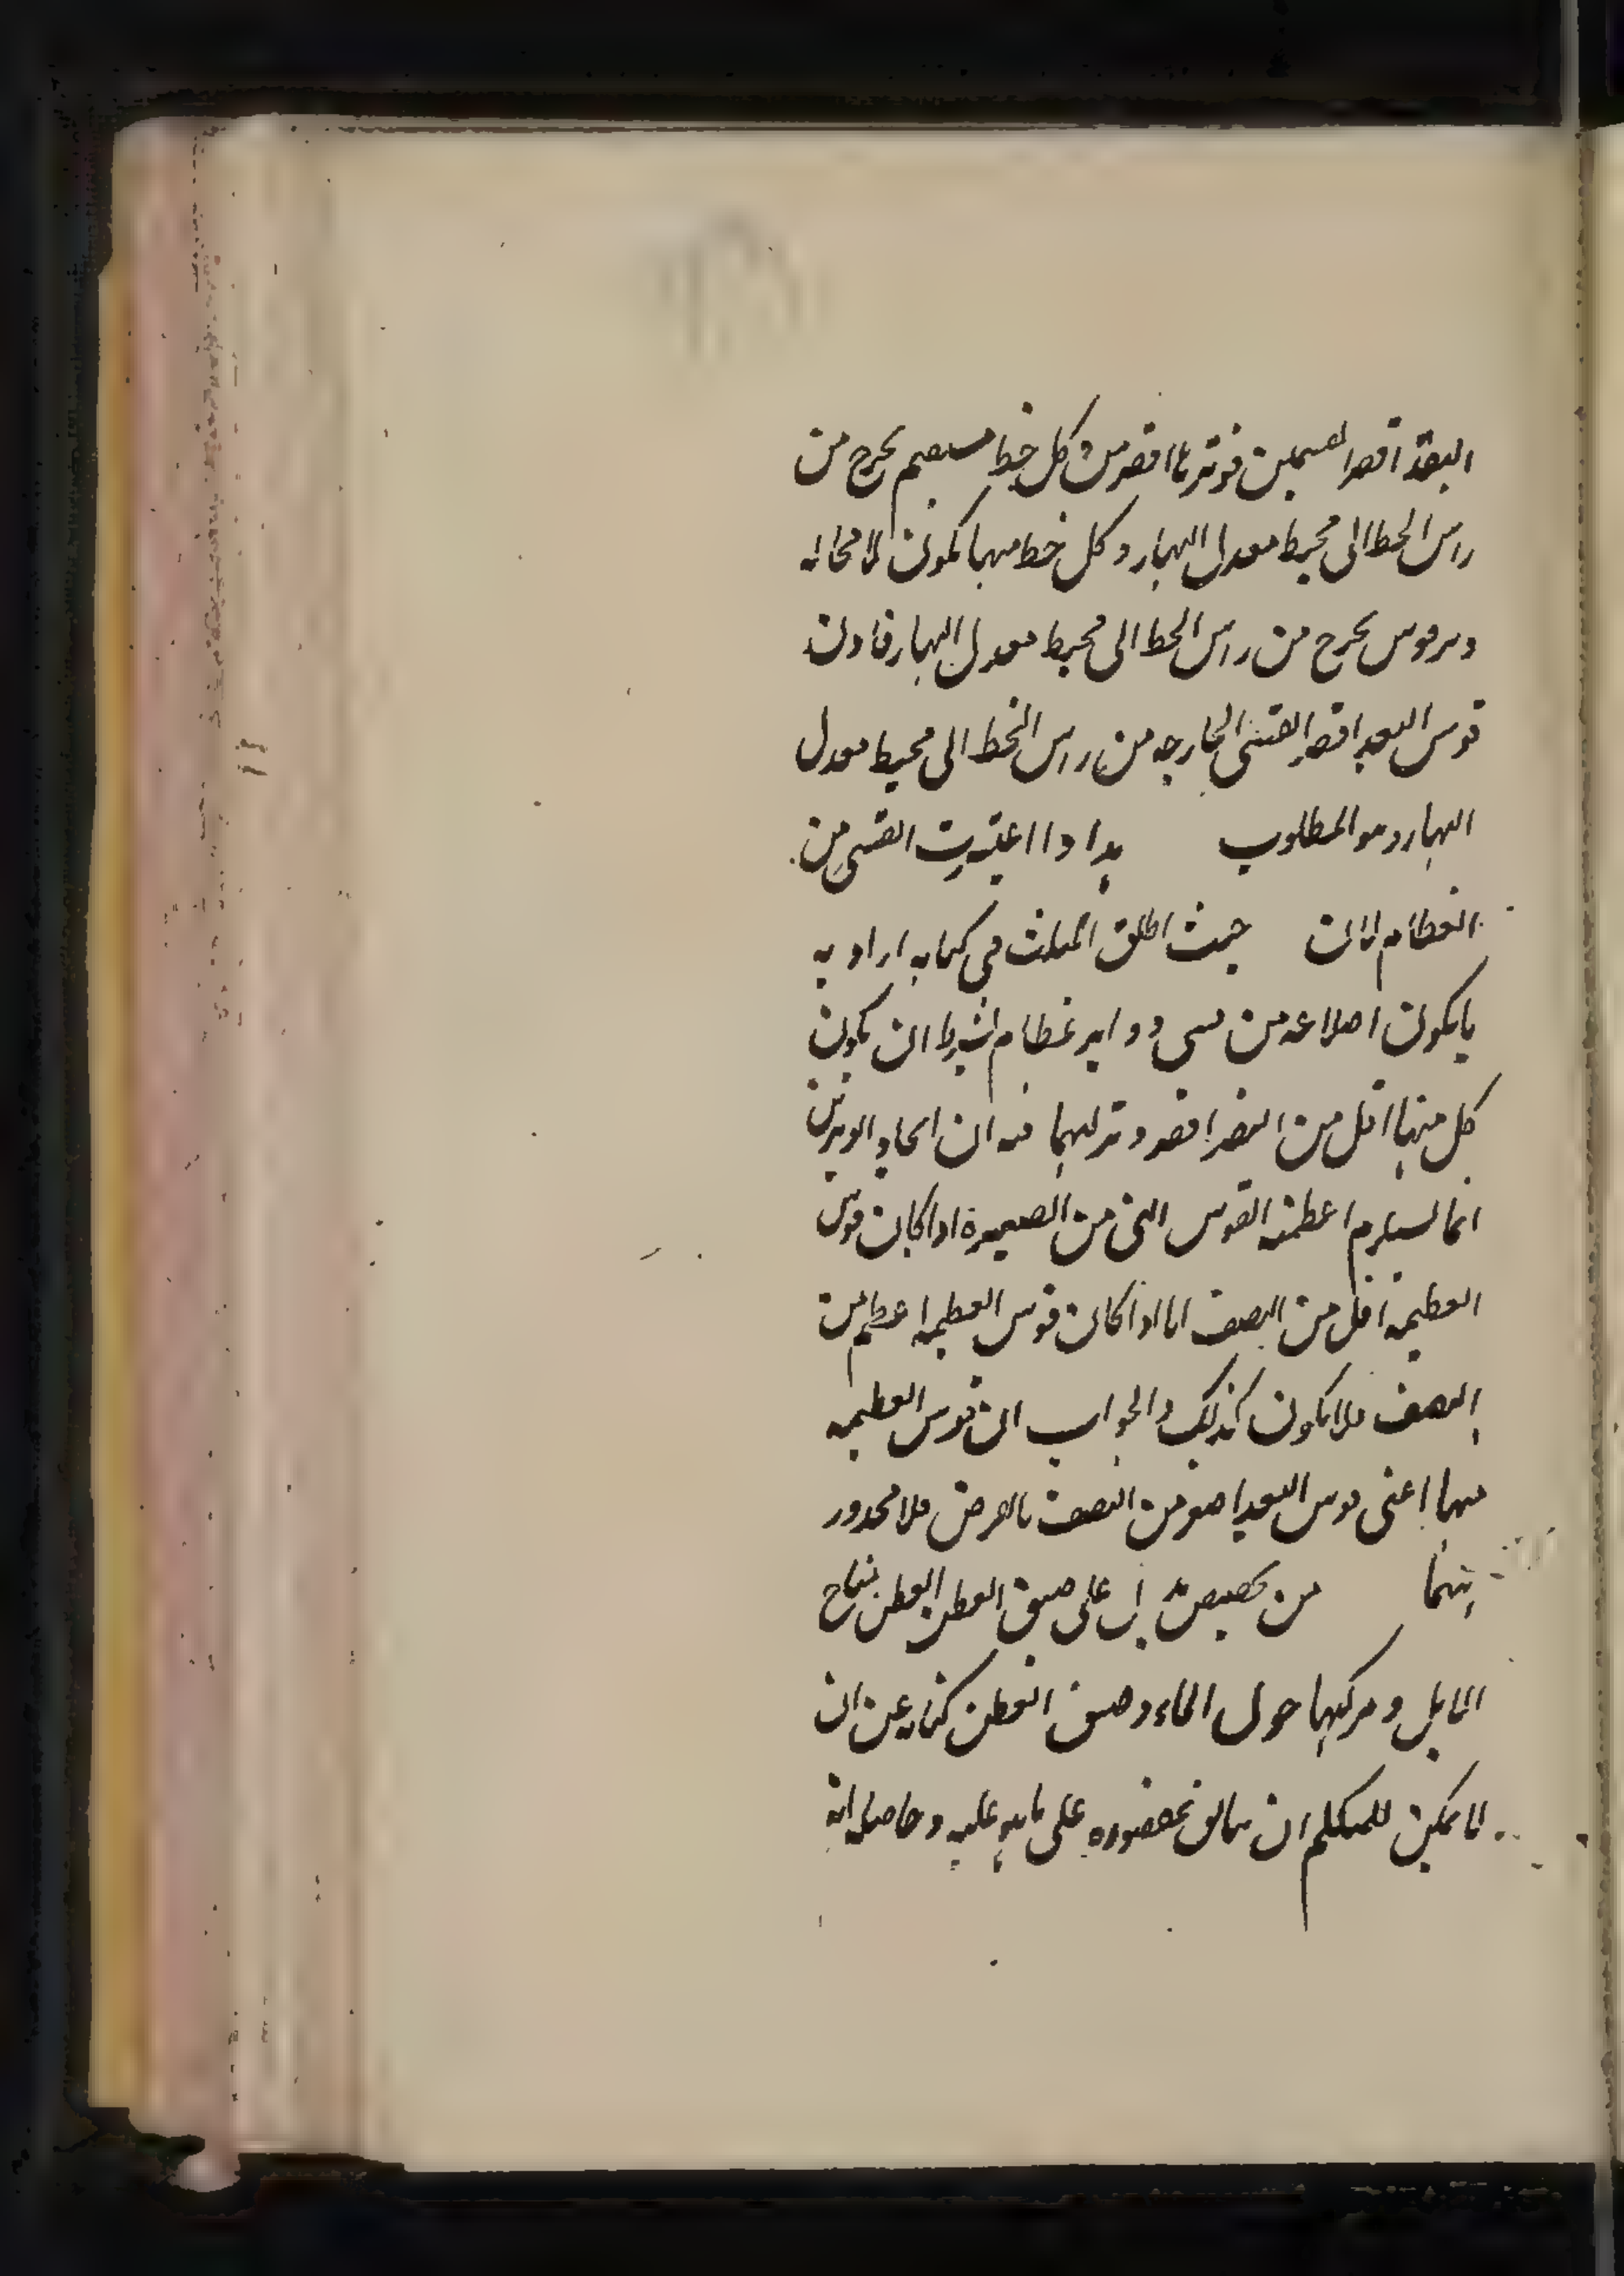 البعد اقصر القسمين فوترها اقصر من كل خط مستقيم يخرج من
راس الخط الى محيط معدل النهار وكل خط منها يكون لا محالة
وتر قوس يخرج من راس الخط الى محيط معدل النهار فاذن
قوس البعد اقصر القسى الخارجه من راس الخط الى محيط معدل
النهار وهو المطلوب هذا اذا اعتبرت القسى من
العظام لا ان حيث اطلق المثلث فى كتابه اراد به
ما يكون اضلاعه من قسى دواير عظام بشرط ان يكون
كل منها اقل من النصف وتر ليهما فيه ان اتحاد الوترين
انما يستلزم اعظمية القوس التى من الصغيرة اذا كان قوس
العظيمة اقل من النصف اما اذا كان قوس العظيمه اعظم من
النصف فلا يكون كذلك والجواب ان قوس العظيمه
منها اعنى قوس البعد اصغر من النصف بالفرض فلا محذور
بينهما من تخصيص على ضيق العطن
المايل و مركبها حول الماء وضيق العطن كناية عن ان
لا يمكن للمتكلم ان على ما هو عليه وحاصله انه